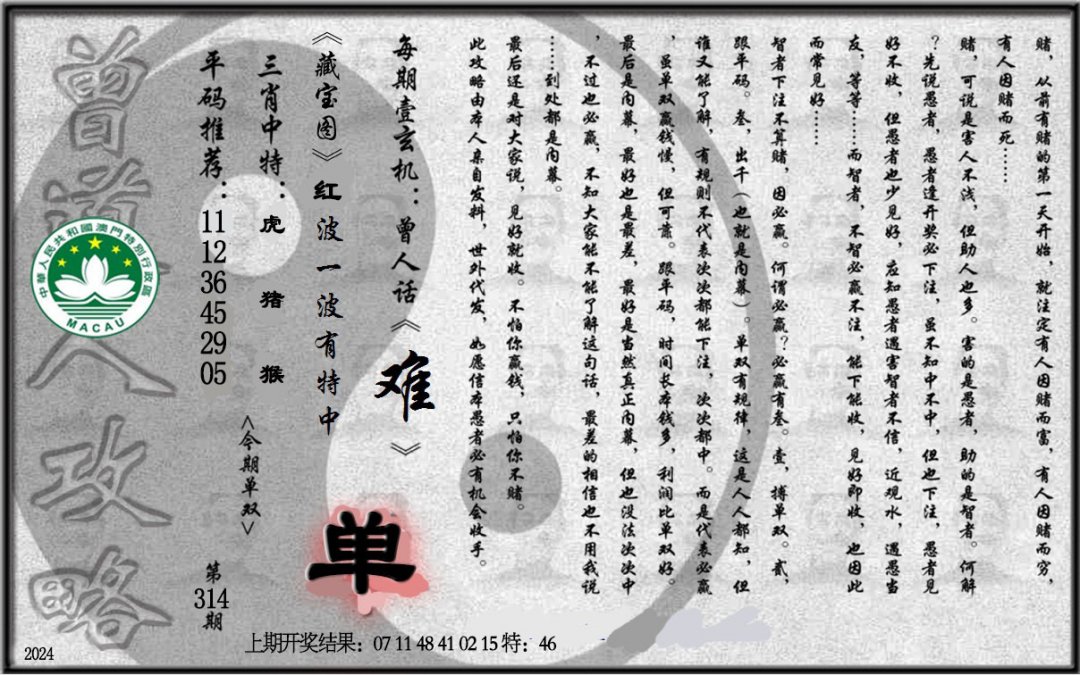 赌，从前有赌的第一天开始，就注定有人因赌而富，有人因赌而穷，
有人因赌而死……
赌，可说是害人不浅，但助人也多。害的是愚者，助的是智者。何解
？先说愚者，愚者逢开奖必下注，虽不知中不中，但也下注，愚者见
好不收，但愚者也少见好，应知愚者遇害智者不信，近观水，遇愚当
友，等等……而智者，不智必赢不注，能下能收，见好即收，也因此
而常见好……
智者下注不算赌，因必赢。何谓必赢？必赢有叁。壹，搏单双。贰，
跟平码。叁，出千（也就是内幕）。单双有规律，这是人人都知，但
谁又能了解，有规则不代表次次都能下注，次次都中。而是代表必赢
，虽单双赢钱慢，但可靠。跟平码，时间长本钱多，利润比单双好。
最后是内幕，最好也是最差，最好是当然真正内幕，但也没法次次中
，不过也必赢，不知大家能不能了解这句话，最差的相信也不用我说
……到处都是内幕。
最后还是对大家说，见好就收。不怕你赢钱，只怕你不赌。
此攻略由本人亲自发料，世外代发，如愿信本愚者必有机会收手。
每期壹玄机：曾人话《难》
《藏宝图》红波一波有特中
单
三肖中特：虎 猪 猴
<今期单双>
平码推荐：11 12 36 45 29 05
第314期
曾道人攻略
中華人民共和國澳門特別行政區
MACAU
上期开奖结果：07 11 48 41 02 15 特：46
2024